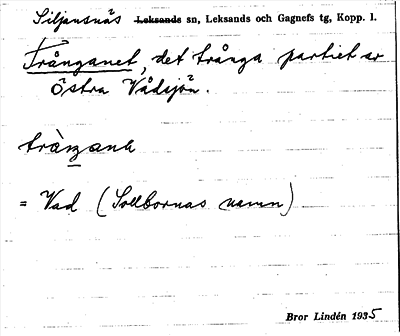 Siljansnäs Leksands sn, Leksands och Gagnefs tg, Kopp. l.
Trånganet, det trånga partiet av
Östra Vådsjön.
= Vad (Sollbornas namn)
Bror Lindén 1935